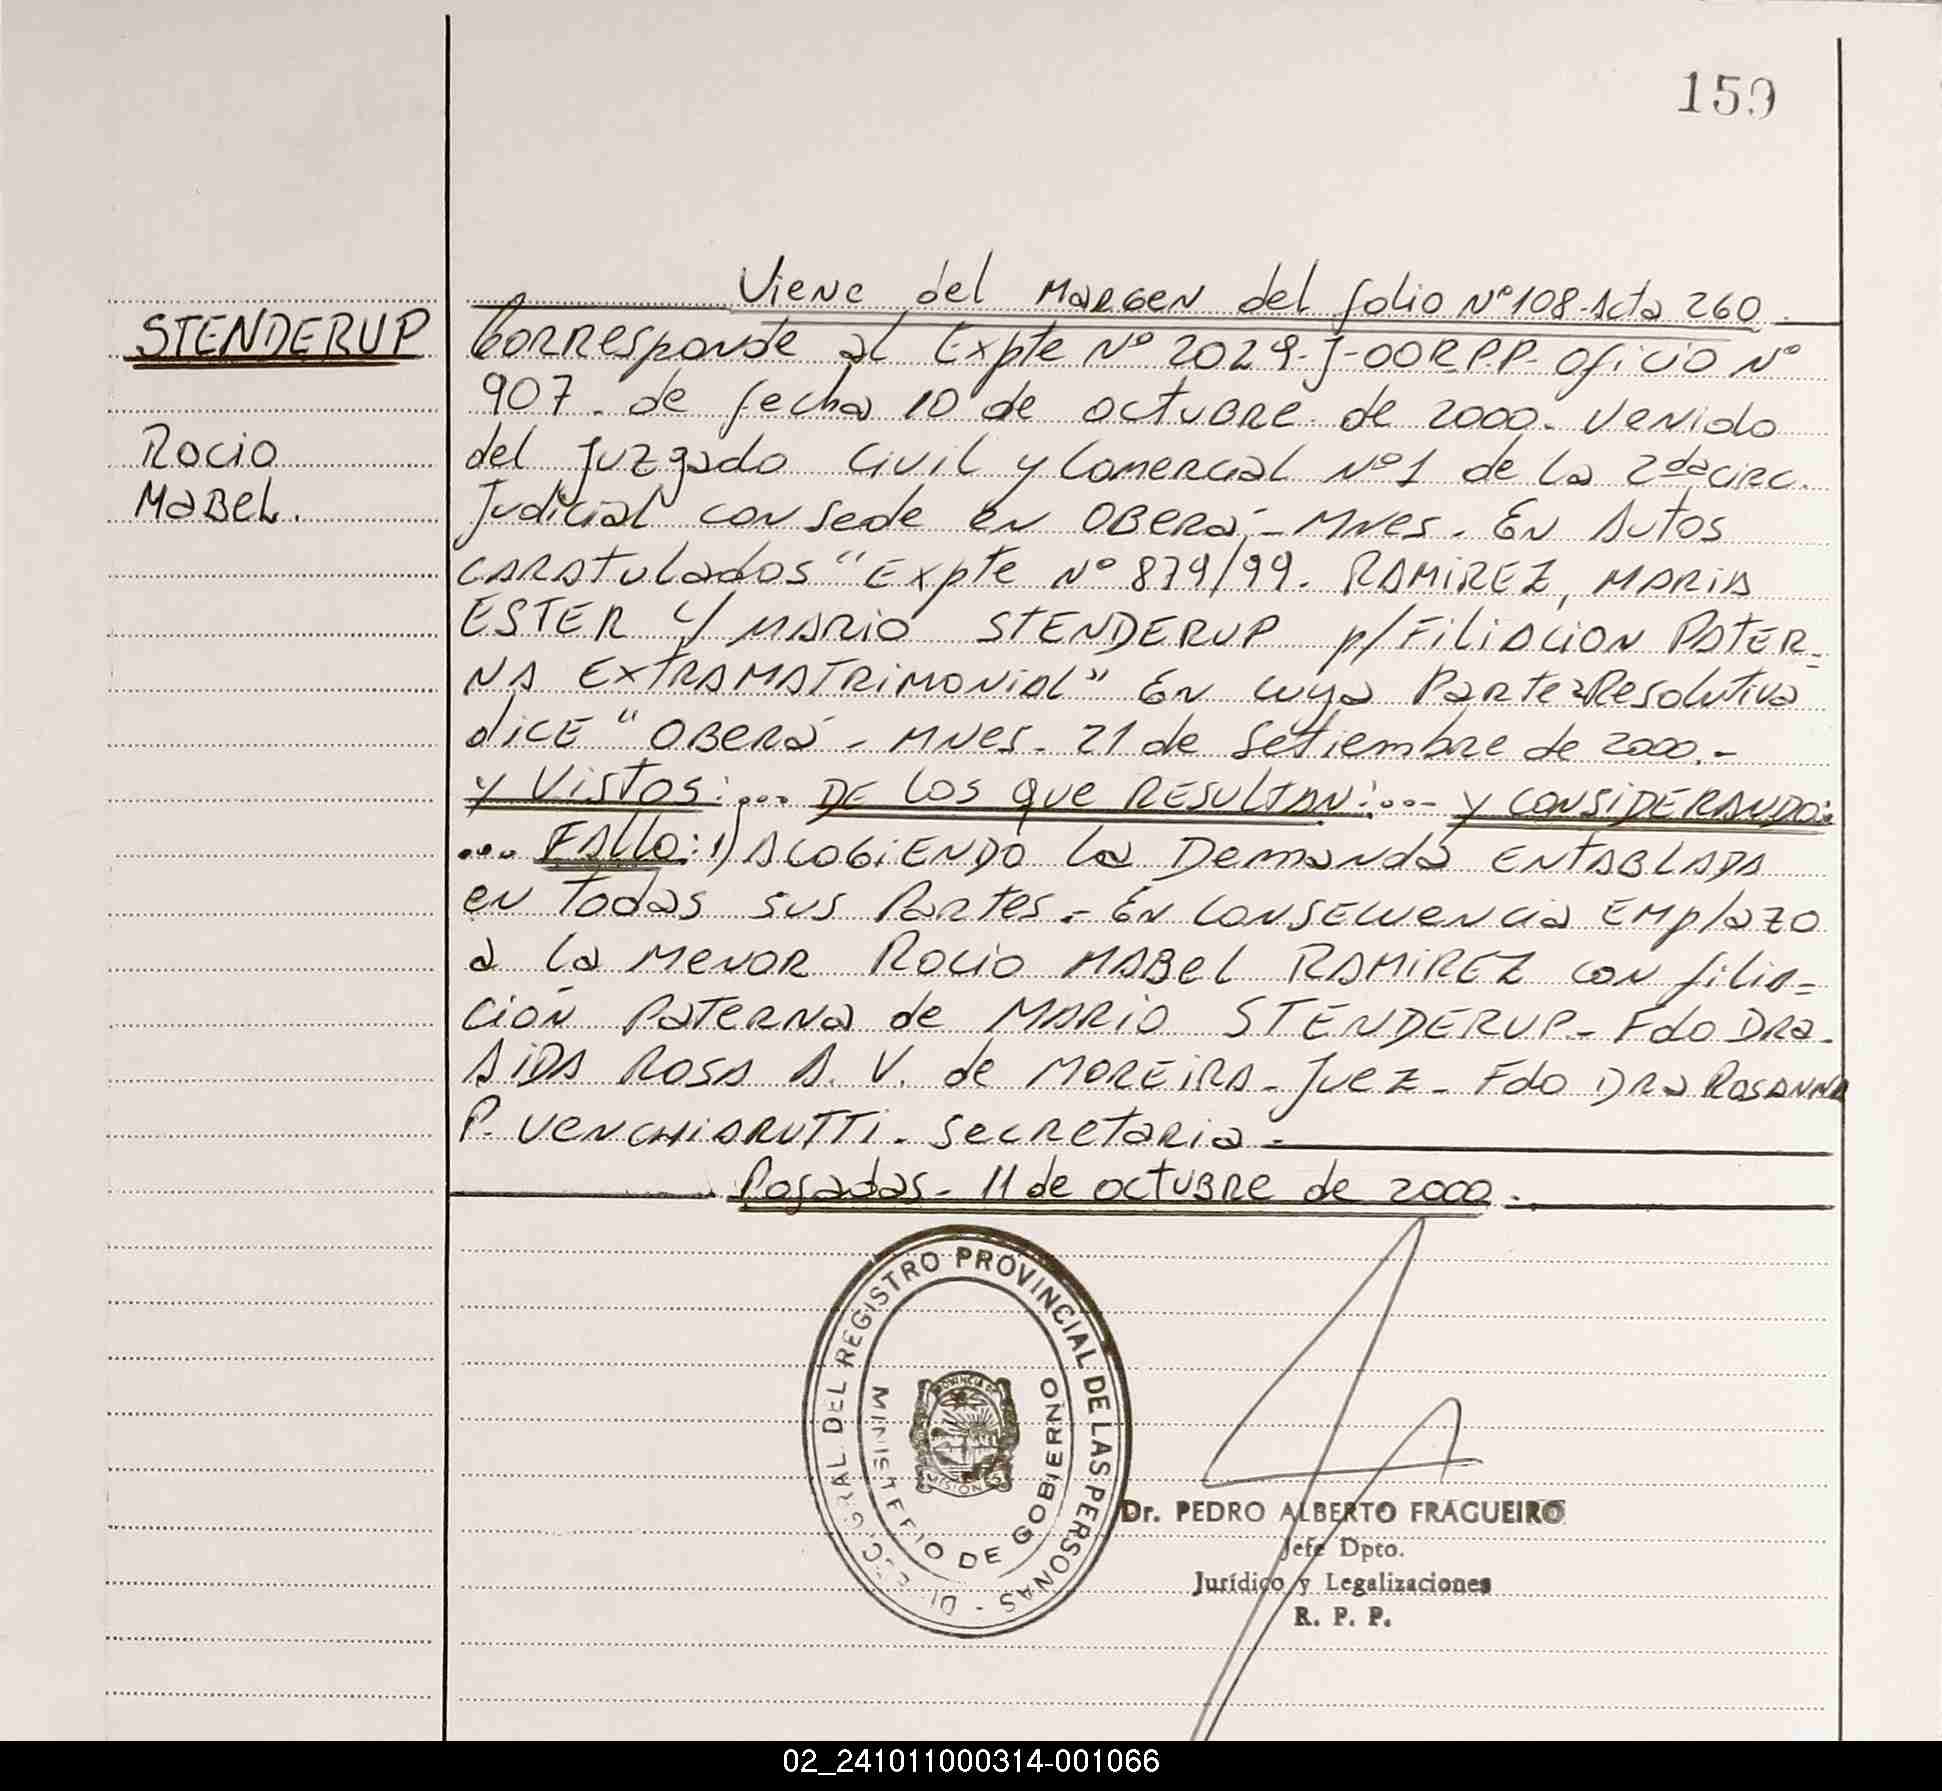 159
Viene del Margen del folio Nº 108-Acta 260.
STENDERUP
Corresponde al Expte Nº 2029-J-00 R.P.P- oficio Nº
907. de fecha 10 de octubre de 2000. Venido
Rocio
del Juzgado Civil y Comercial Nº 1 de la 2da circ.
Mabel.
Judicial con sede en Oberá - Mnes. En Autos
caratulados "Expte Nº 879/99. RAMIREZ, MARIA
ESTER C/ MARIO STENDERUP p/ FiliAcion PATER-
NA EXTRAMATRIMONIAL" En cuya Parte Resolutiva
dice "Oberá - Mnes. 21 de Setiembre de 2000.-
y Vistos:... DE LOS que RESULTAN:... y CONSIDERANDO:
... FALLO: 1) ACOGIENDO la Demanda ENTABLADA
en todas sus Partes. - En consecuencia Emplazo
a la menor Rocio MABEL RAMIREZ con filia=
ción Paterna de MARIO STENDERUP- Fdo Dra.
AIDA ROSA A. V. de MOREIRA- Juez- Fdo DRa ROSANNA
P. VENCHIARUTTI. Secretaria -
Posadas- 11 de octubre de 2000.
DIRECC. GRAL DEL REGISTRO PROVINCIAL DE LAS PERSONAS -
MINISTERIO DE GOBIERNO
PROVINCIA DE
MISIONES
Dr. PEDRO ALBERTO FRAGUEIRO
Jefe Dpto.
Jurídico y Legalizaciones
R. P. P.
02_241011000314-001066